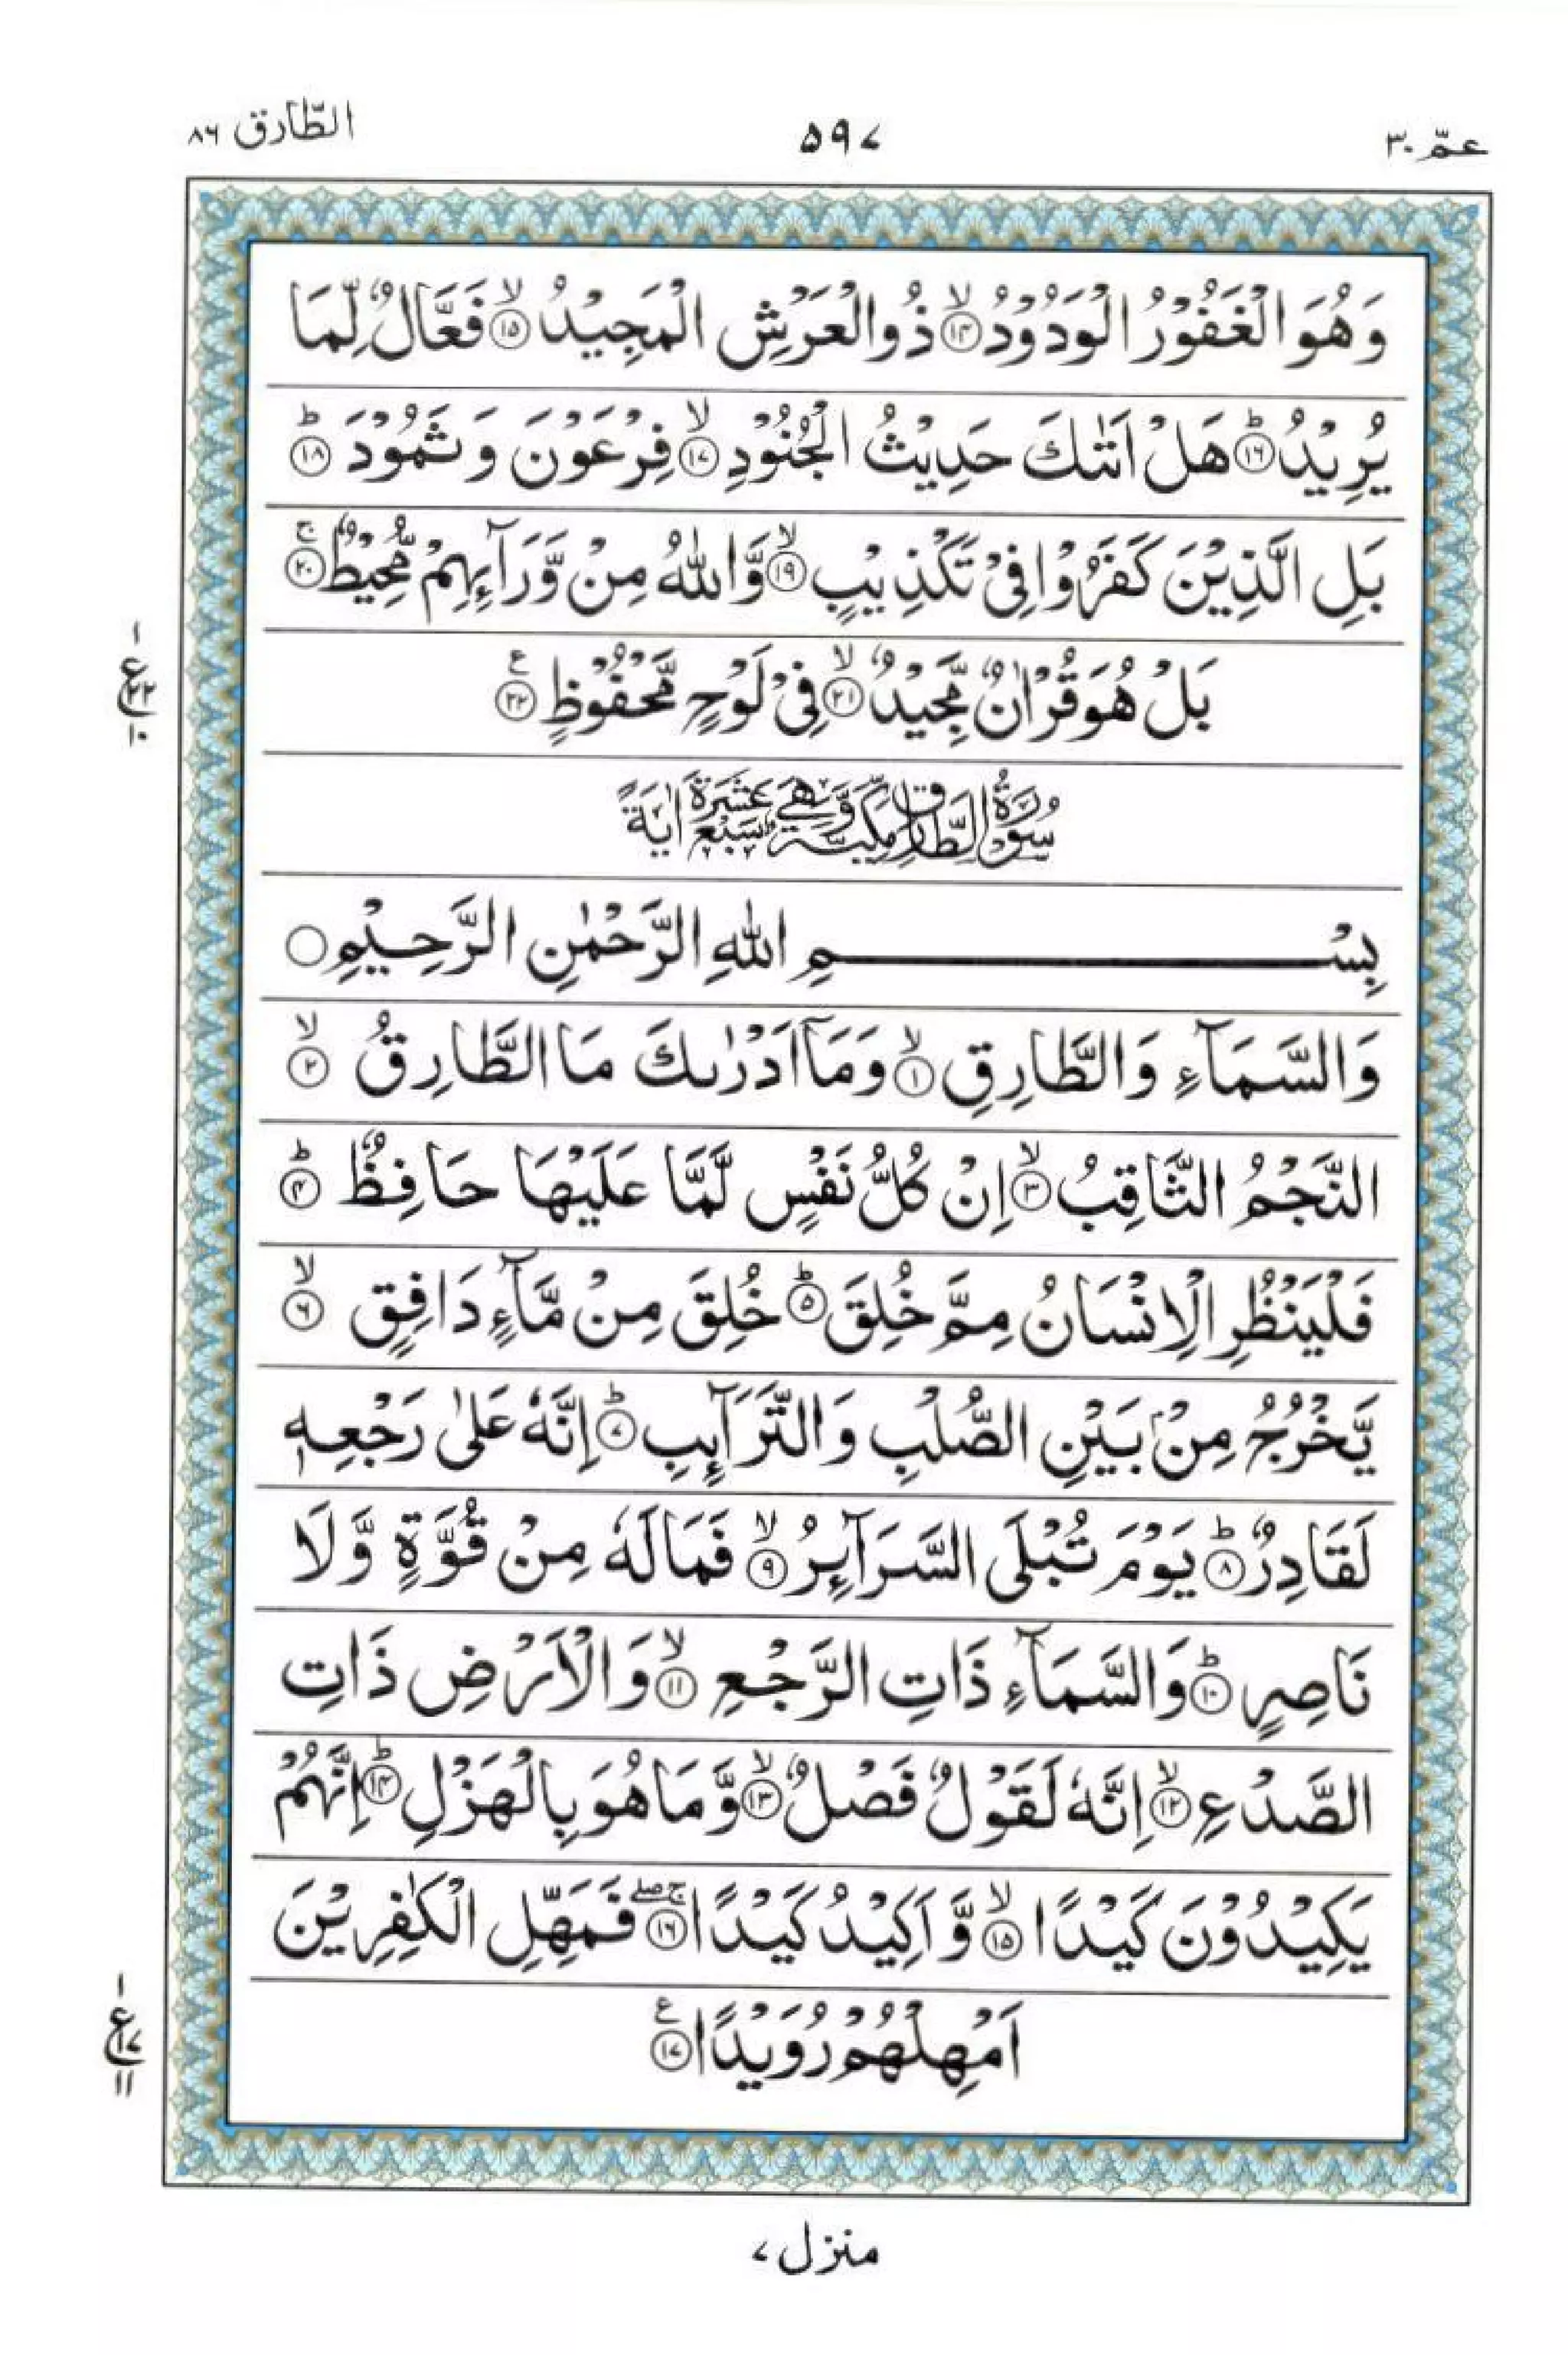 عمّ ٣٠ ٥٩٧ الطّارق ٨٦
وَهُوَ الْغَفُوْرُ الْوَدُوْدُ ۙ﴿۱۴﴾ ذُو الْعَرْشِ الْمَجِيْدُ ۙ﴿۱۵﴾ فَعَّالٌ لِّمَا
يُرِيْدُ ؕ﴿۱۶﴾ هَلْ اَتٰىكَ حَدِيْثُ الْجُنُوْدِ ۙ﴿۱۷﴾ فِرْعَوْنَ وَ ثَمُوْدَ ؕ﴿۱۸﴾
بَلِ الَّذِيْنَ كَفَرُوْا فِيْ تَكْذِيْبٍ ۙ﴿۱۹﴾ وَّاللّٰهُ مِنْ وَّرَآئِهِمْ مُّحِيْطٌ ۚ﴿۲۰﴾
بَلْ هُوَ قُرْاٰنٌ مَّجِيْدٌ ۙ﴿۲۱﴾ فِيْ لَوْحٍ مَّحْفُوْظٍ ﴿۲۲﴾ ع
١ ع ٢٢ ١٠
سُوْرَةُ الطَّارِقِ مَكِّيَّةٌ وَّهِيَ سَبْعَ عَشْرَةَ اٰيَةً
بِسْمِ اللّٰهِ الرَّحْمٰنِ الرَّحِيْمِ ○
وَالسَّمَآءِ وَالطَّارِقِ ۙ﴿۱﴾ وَمَآ اَدْرٰىكَ مَا الطَّارِقُ ۙ﴿۲﴾
النَّجْمُ الثَّاقِبُ ۙ﴿۳﴾ اِنْ كُلُّ نَفْسٍ لَّمَّا عَلَيْهَا حَافِظٌ ؕ﴿۴﴾
فَلْيَنْظُرِ الْاِنْسَانُ مِمَّ خُلِقَ ؕ﴿۵﴾ خُلِقَ مِنْ مَّآءٍ دَافِقٍ ۙ﴿۶﴾
يَّخْرُجُ مِنْۢ بَيْنِ الصُّلْبِ وَالتَّرَآئِبِ ؕ﴿۷﴾ اِنَّهٗ عَلٰى رَجْعِهٖ
لَقَادِرٌ ؕ﴿۸﴾ يَوْمَ تُبْلَى السَّرَآئِرُ ۙ﴿۹﴾ فَمَا لَهٗ مِنْ قُوَّةٍ وَّلَا
نَاصِرٍ ؕ﴿۱۰﴾ وَالسَّمَآءِ ذَاتِ الرَّجْعِ ۙ﴿۱۱﴾ وَالْاَرْضِ ذَاتِ
الصَّدْعِ ۙ﴿۱۲﴾ اِنَّهٗ لَقَوْلٌ فَصْلٌ ۙ﴿۱۳﴾ وَّمَا هُوَ بِالْهَزْلِ ؕ﴿۱۴﴾ اِنَّهُمْ
يَكِيْدُوْنَ كَيْدًا ۙ﴿۱۵﴾ وَّاَكِيْدُ كَيْدًا ۚۖ﴿۱۶﴾ فَمَهِّلِ الْكٰفِرِيْنَ
اَمْهِلْهُمْ رُوَيْدًا ﴿۱۷﴾ ع
١ ع ١٧ ١١
منزل ٧